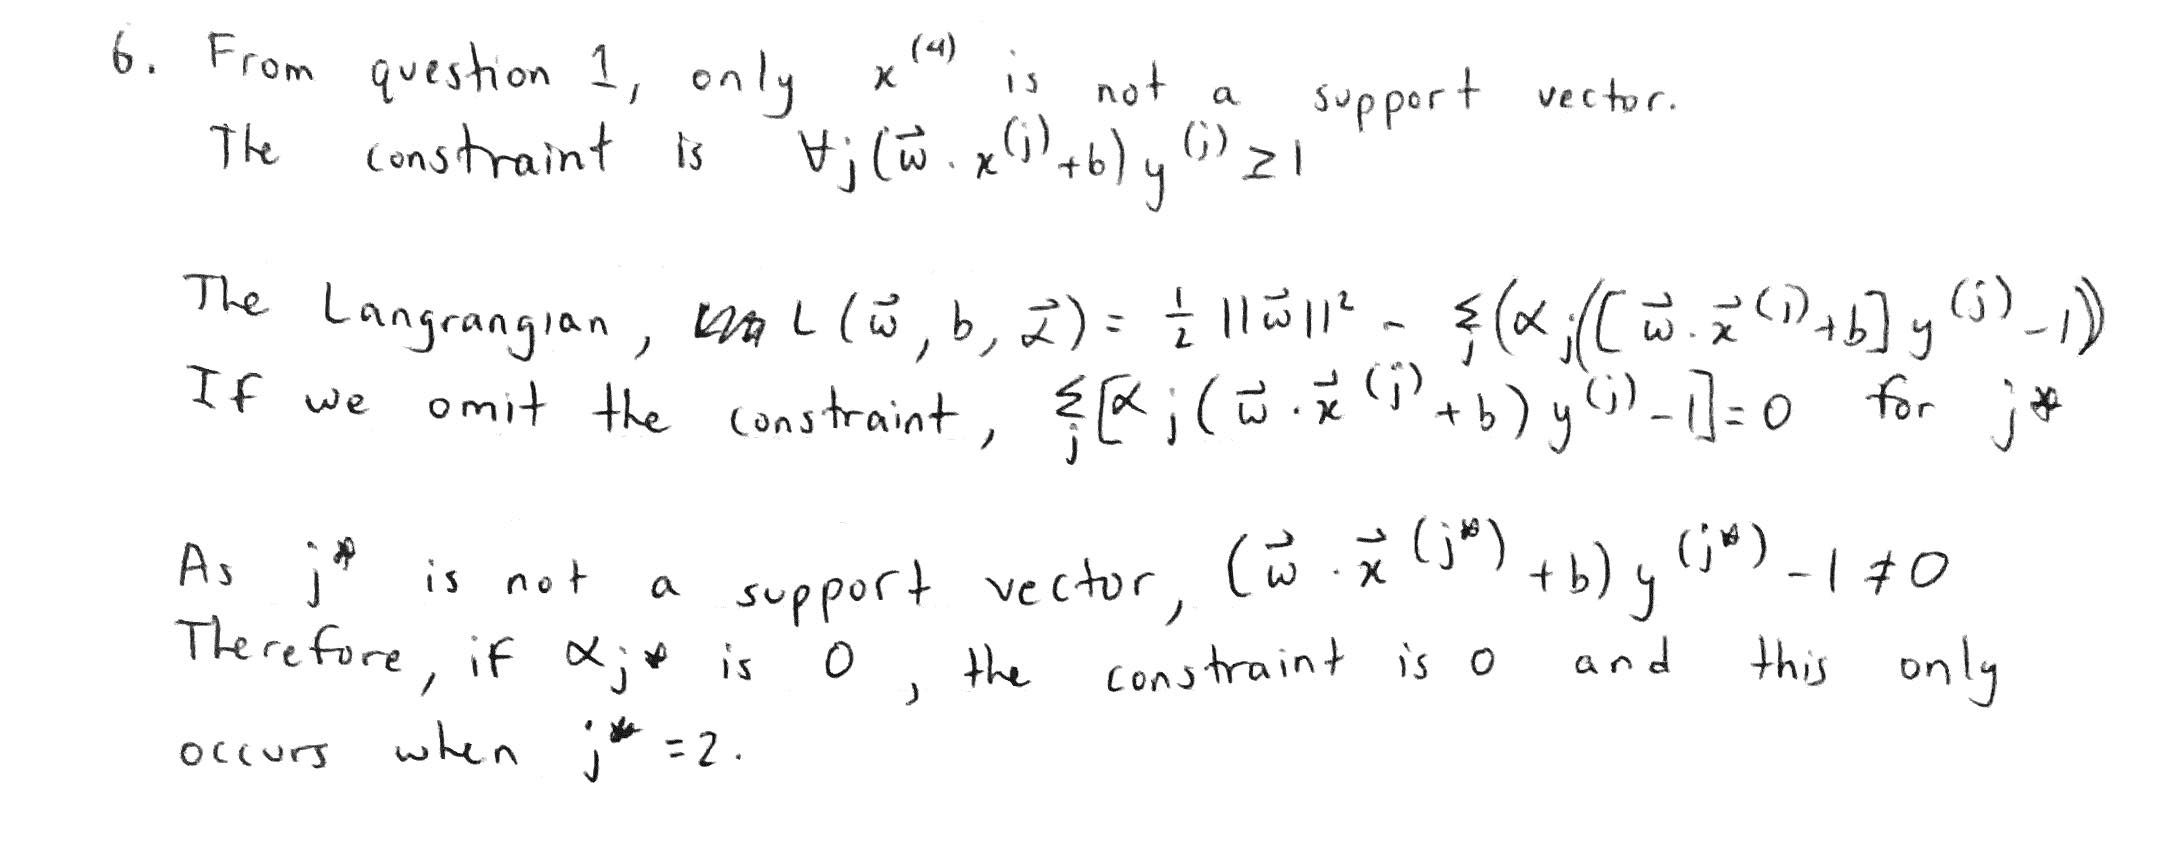 6. From question 1, only x^(4) is not a support vector.
The constraint is ∀j (w⃗ · x^(j) + b) y^(j) ≥ 1
The Langrangian, L (w⃗, b, α⃗) = 1/2 ||w⃗||² - Σ_j (α_j ([w⃗ · x⃗^(j) + b] y^(j) - 1))
If we omit the constraint, Σ_j [α_j (w⃗ · x⃗^(j) + b) y^(j) - 1] = 0 for j*
As j* is not a support vector, (w⃗ · x⃗^(j*) + b) y^(j*) - 1 ≠ 0
Therefore, if α_j* is 0, the constraint is 0 and this only
occurs when j* = 2.